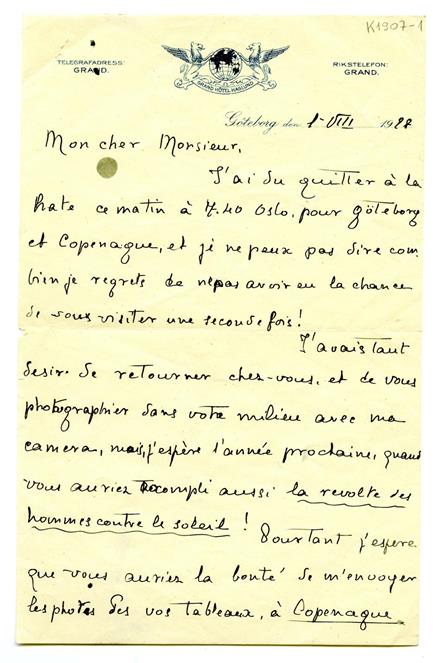 K1907-1
TELEGRAFADRESS:
GRAND.
GRAND HÔTEL HAGLUND
RIKSTELEFON:
GRAND.
Göteborg den 1-VIII 1927
Mon cher Monsieur,
J'ai du quitter à la
hate ce matin à 7.40 Oslo, pour Göteborg
et Copenague, et je ne peux pas dire com
bien je regrets de ne pas avoir eu la chance
de vous visiter une seconde fois!
J'avais tant
desir de retourner chez-vous, et de vous
photographier dans votre milieu avec ma
camera, mais, j'espère l'année prochaine, quand
vous auriez accompli aussi la revolte des
hommes contre le soleil!
Pourtant j'espere
que vous auriez la bonté de m'envoyer
les photos des vos tableaux, à Copenague